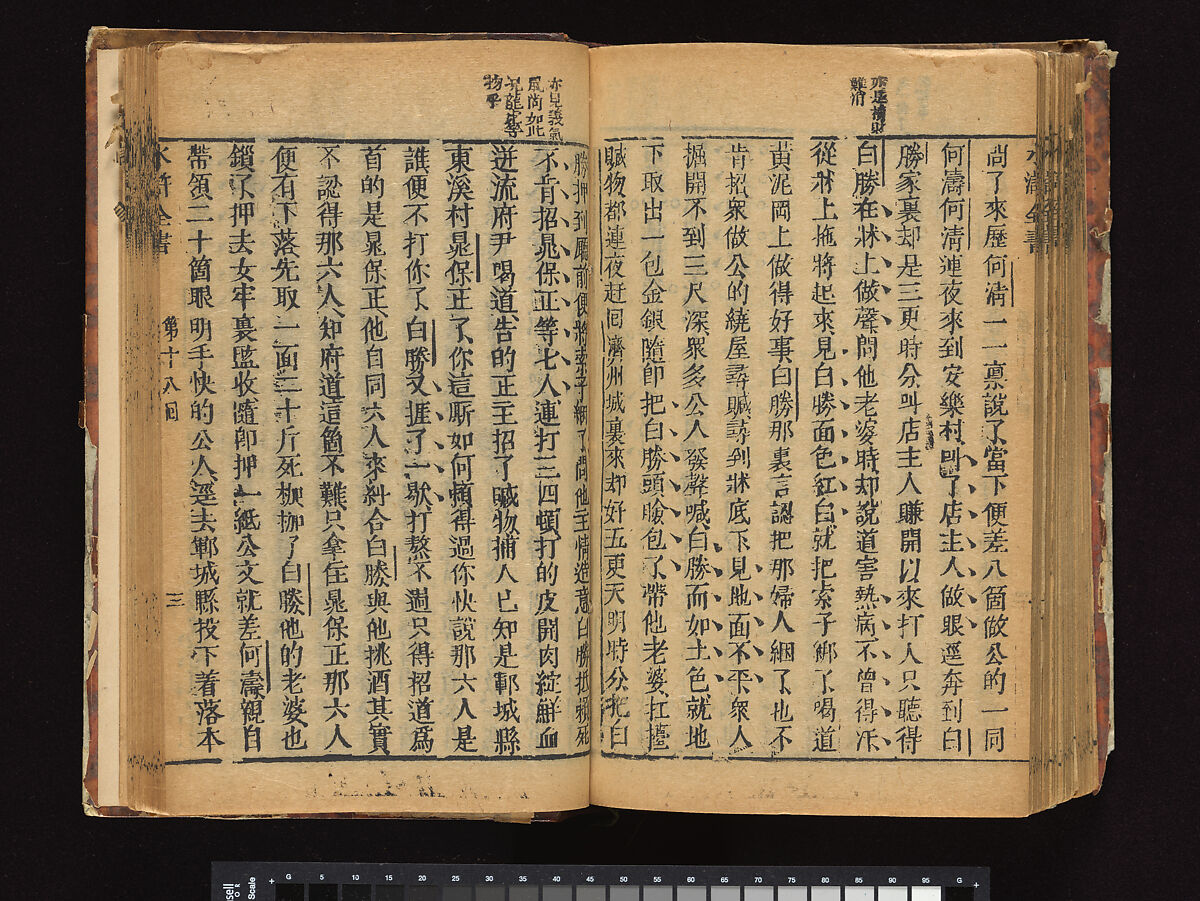 亦是橫財
難消
水滸全書
尚了來歷何清一一禀說了當下便差八箇做公的一同
何濤何清連夜來到安樂村叫了店主人做眼逕奔到白
勝家裏却是三更時分叫店主人賺開以來打人只聽得
白勝在牀上做聲問他老婆時却說道害熱病不曾得汗
從牀上拖將起來見白勝面色紅白就把索子綁了喝道
黃泥岡上做得好事白勝那裏言認把那婦人綑了也不
肯招衆做公的繞屋尋贓尋到牀底下見地面不平衆人
掘開不到三尺深衆多公人發聲喊白勝面如土色就地
下取出一包金銀隨即把白勝頭臉包了帶他老婆扛擡
贓物都連夜赶回濟州城裏來却好五更天明時分把白
亦見義氣
風尚如此
物乎
勝押到廳前便將索子綑了問他主情造意白勝抵賴死
不肯招晁保正等七人連打三四頓打的皮開肉綻鮮血
迸流府尹喝道告的正主招了贓物捕人已知是鄆城縣
東溪村晁保正了你這厮如何頼得過你快說那六人是
誰便不打你了白勝又捱了一歇打熬不過只得招道爲
首的是晁保正他自同六人來糾合白勝與他挑酒其實
不認得那六人知府道這箇不難只拿住晁保正那六人
便有下落先取一面二十斤死枷枷了白勝他的老婆也
鎖了押去女牢裏監收隨即押一紙公文就差何濤親自
帶領二十箇眼明手快的公人逕去鄆城縣投下着落本
水滸全書 第十八回 三
G 5 10 15 20 25 30 35 40 45 50 55 60 65 70 75 80 85 90 95 G
Scale